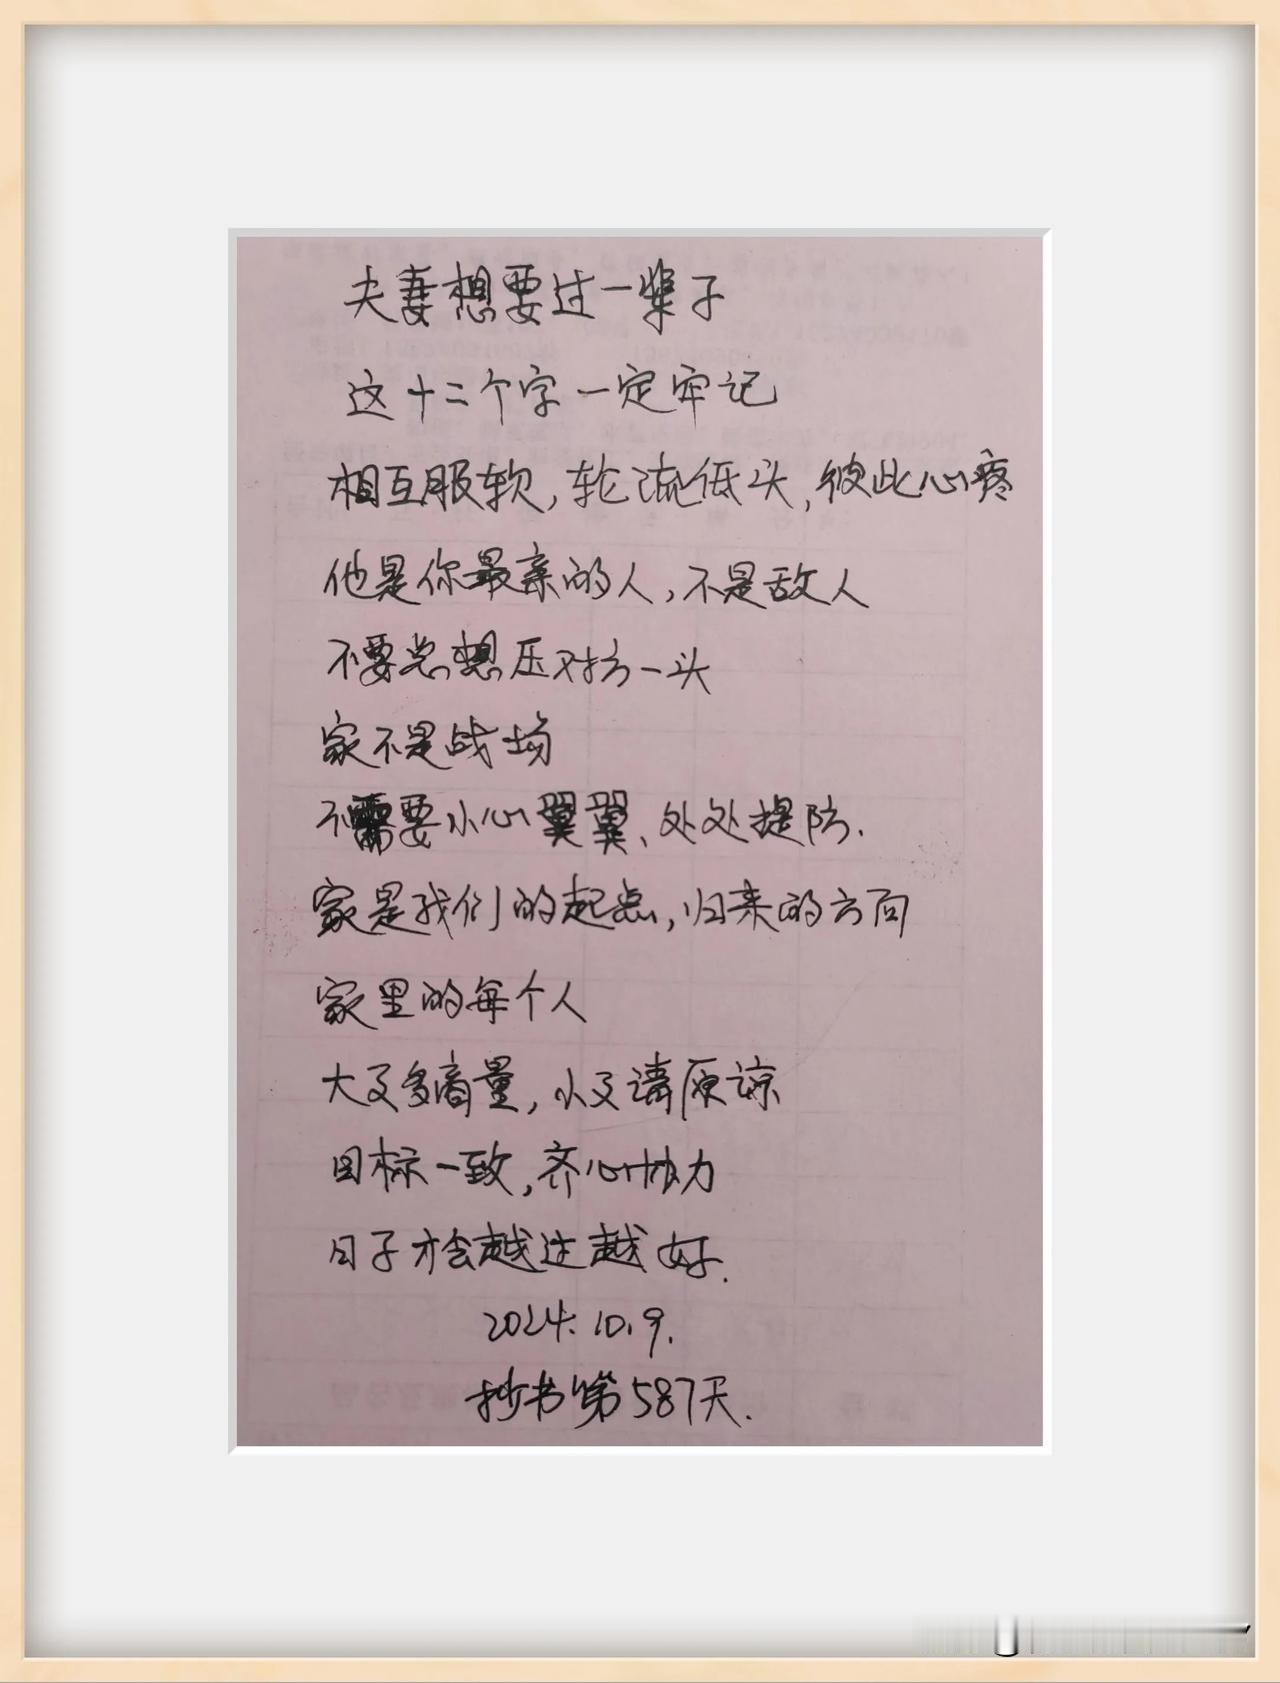 夫妻想要过一辈子
这十二个字一定牢记
相互服软,轮流低头,彼此心疼
他是你最亲的人,不是敌人
不要总想压对方一头
家不是战场
不需要小心翼翼、处处提防.
家是我们的起点,归来的方向
家里的每个人
大又多商量,小又请原谅
目标一致,齐心协力
日子才会越过越好.
2024.10.9.
抄书第587天.